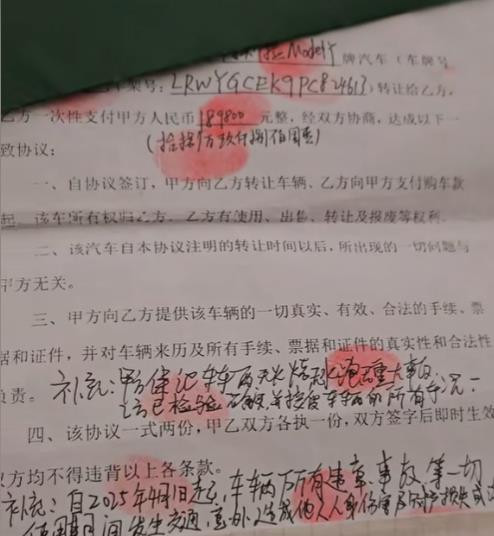 Model Y 牌汽车（车牌号
架号：LRWYGCEK9PC824613）转让给乙方，
乙方一次性支付甲方人民币 189800 元整，经双方协商，达成以下一
致协议：
一、自协议签订，甲方向乙方转让车辆、乙方向甲方支付购车款
起，该车所有权归乙方。乙方有使用、出售、转让及报废等权利。
二、该汽车自本协议注明的转让时间以后，所出现的一切问题与
甲方无关。
三、甲方向乙方提供该车辆的一切真实、有效、合法的手续、票
据和证件，并对车辆来历及所有手续、票据和证件的真实性和合法性
负责。补充：甲方保证车辆无火烧 泡 重大事故
乙方已检验 并接受车辆的所有
四、该协议一式两份，甲乙双方各执一份，双方签字后即时生效
双方均不得违背以上各条款。
补充：自2025年4月1日起，车辆所有违章、事故等一切
使用期间发生交通，意外造成他人人身伤害及财产损失